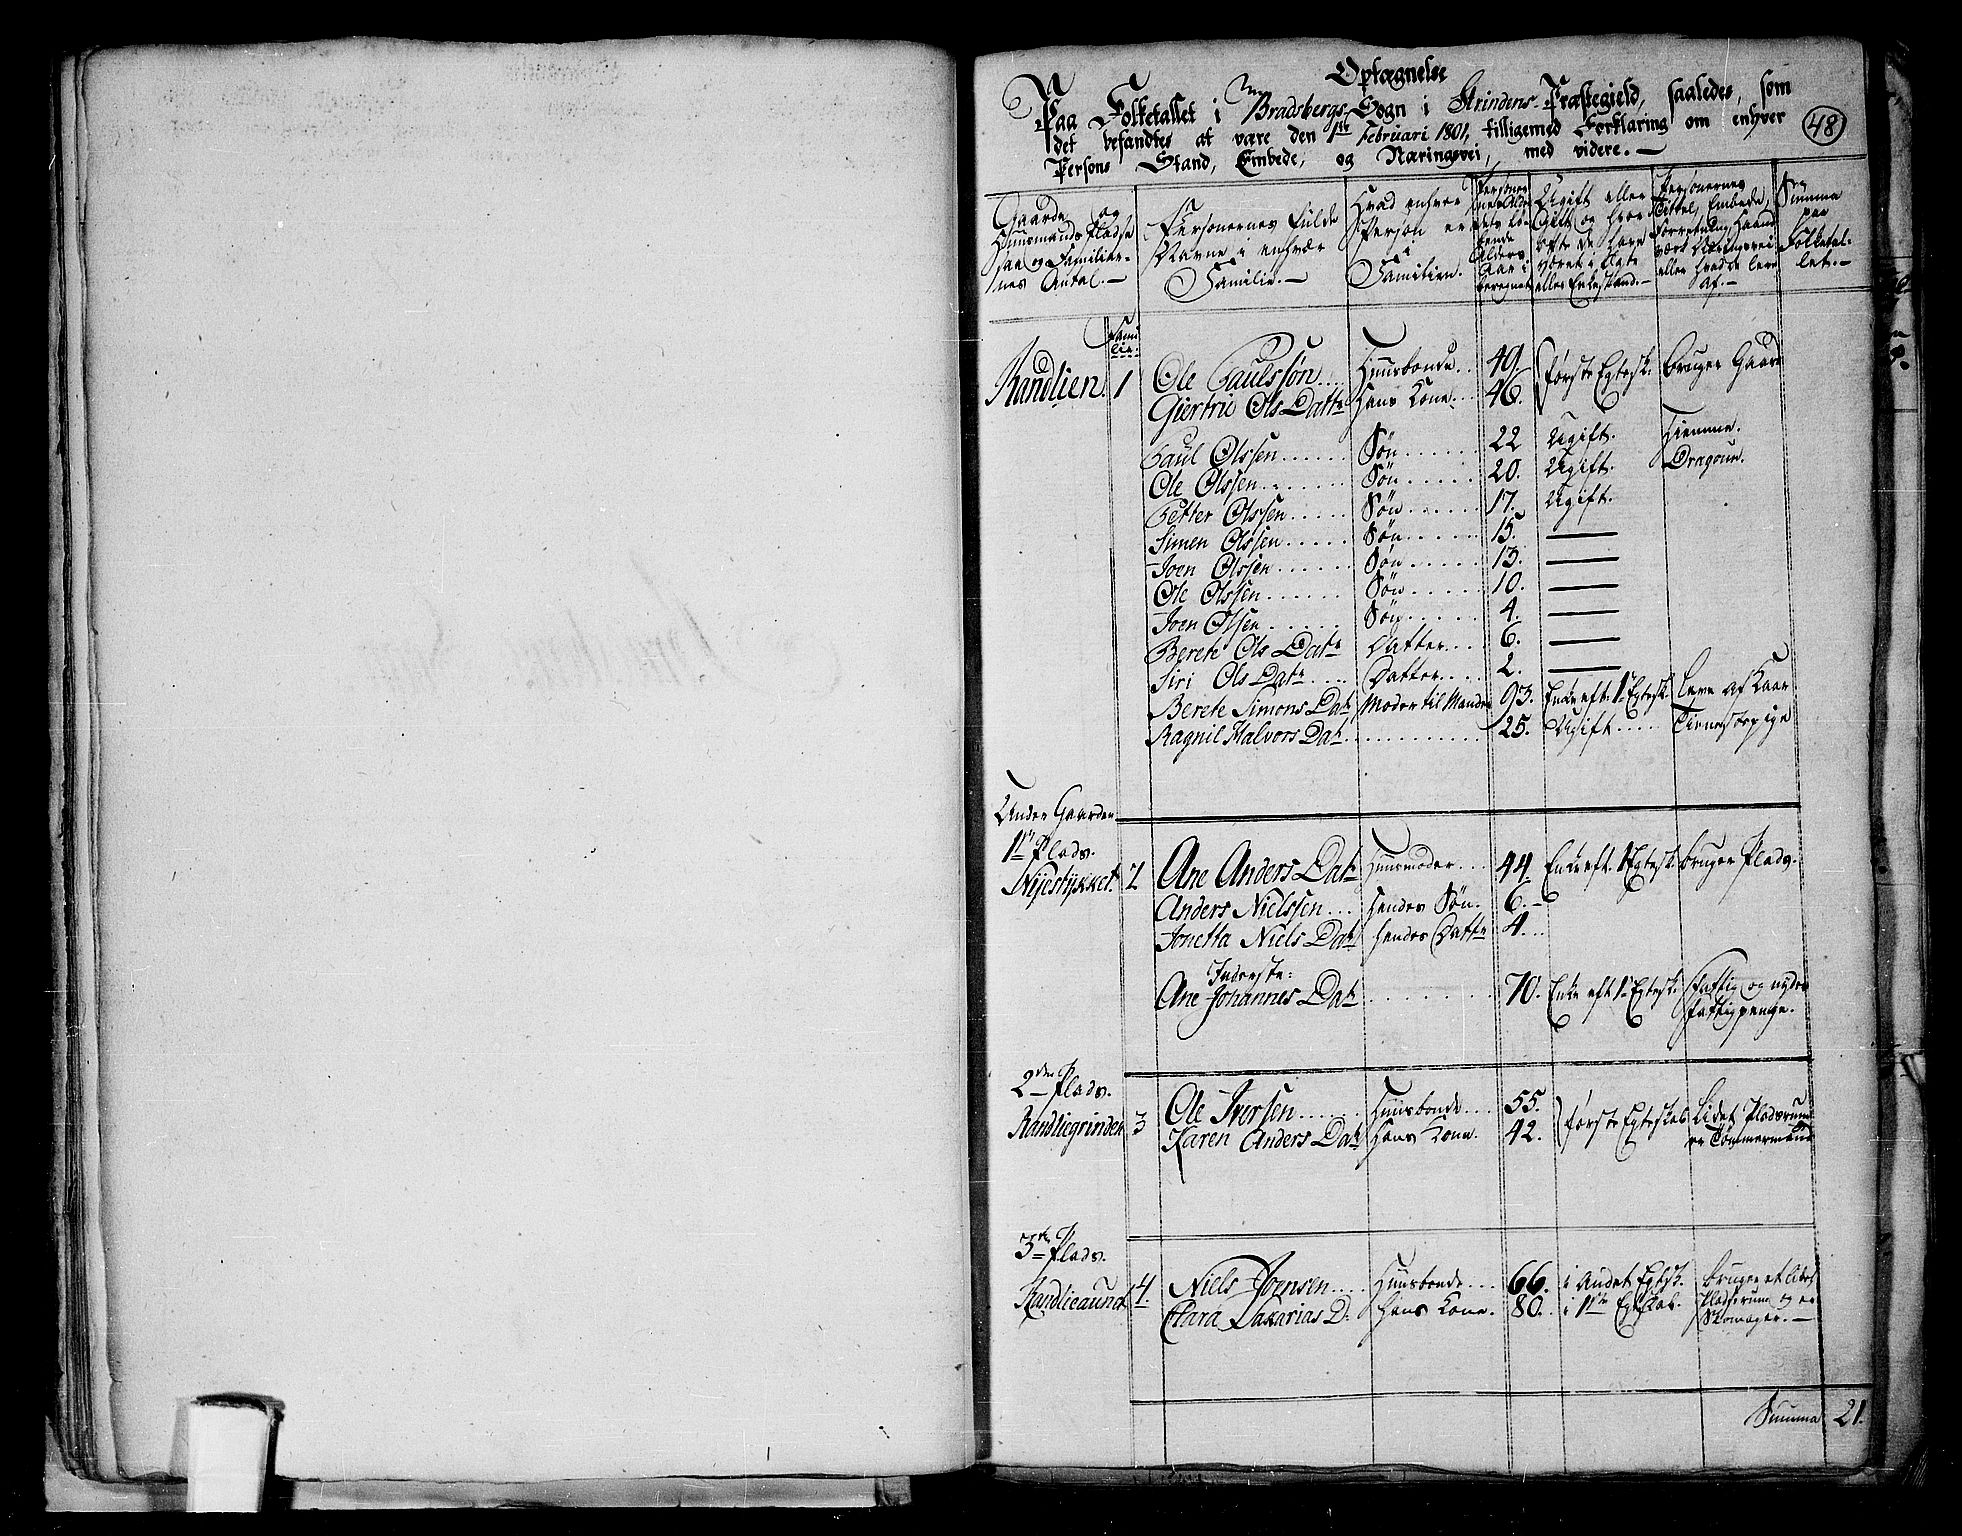 Optegnelse
Paa Folketallet i Bradsbergs Sogn i Strindens Præstegield, saaledes, som
det befandtes at være den 1ste Februari 1801, tilligemed Forklaring om enhver
Persons Stand, Embede, og Næringsvei, med videre.—
48
Gaarde og Huusmands Pladse samt Familiernes Antal.—
Personernes fulde Navne i enhver Familie.—
Hvad enhver Person er i Familien.
Personernes Alder det løbende Alders Aar i beregnet
Ugift eller Gift og hvor ofte de have været i Ægte eller Enkestand.—
Personernes Tittel, Embede, Forretning, Haandværk Næringsvei eller hvad de leve af.—
Summa paa Folketallet.—
Familie:
Randlien. 1 Ole Paulssøn.... Huusbonde.. 40. første Egtesk. bruger Gaard
Giertrie Ols Dattr Hans Kone... 46.
Paul Olssen...... Søn...... 22 Ugift. Hiemme.
Ole Olssen....... Søn...... 20. Ugift. Dragoun.
Petter Olssen..... Søn...... 17. Ugift.
Simen Olssen...... Søn...... 15. —
Joen Olssen...... Søn...... 13. —
Ole Olssen...... Søn...... 10. —
Joen Olsen...... Søn...... 4. —
Berete Ols Datr Datter... 6. —
Siri Ols Datr.... Datter.... 2. —
Berete Simons Datr Moder til Manden 93. Enke eft. 1ste Egtesk. leve af Kaar
Ragnil Halvors Datr............ 25. Ugift..... Tienestepige
Under Gaarden
1ste Plads.
Nijestykket. 2 Ane Anders Datr Huusmoder.... 44. Enke eft. 1 Egtesk. bruger Plads.
Anders Nielssen.... Hendes Søn. 6.-
Jonetta Niels Datr Hendes Dattr 4...
Inderste:
Ane Johannes Datr........ 70. Enke eft 1ste Egtesk. Fattig og nyder
Fattigpenge.
2den Plads.
Randliegrinden 3 Ole Iversen...... Huusbonde... 55. første Egteskab Lidet Pladserum
Karen Anders Datr Hans Kone. 42. er Tømmermand
3de Plads.
Randlieaunet 4. Niels Joensen.... Huusbonde.... 66. i Andet Egtesk. bruger et lidet
Clara Zakarias D. Hans Kone. 80.. i 1ste Egteskab. Pladserum og er
Skomager.—
Summa 21.